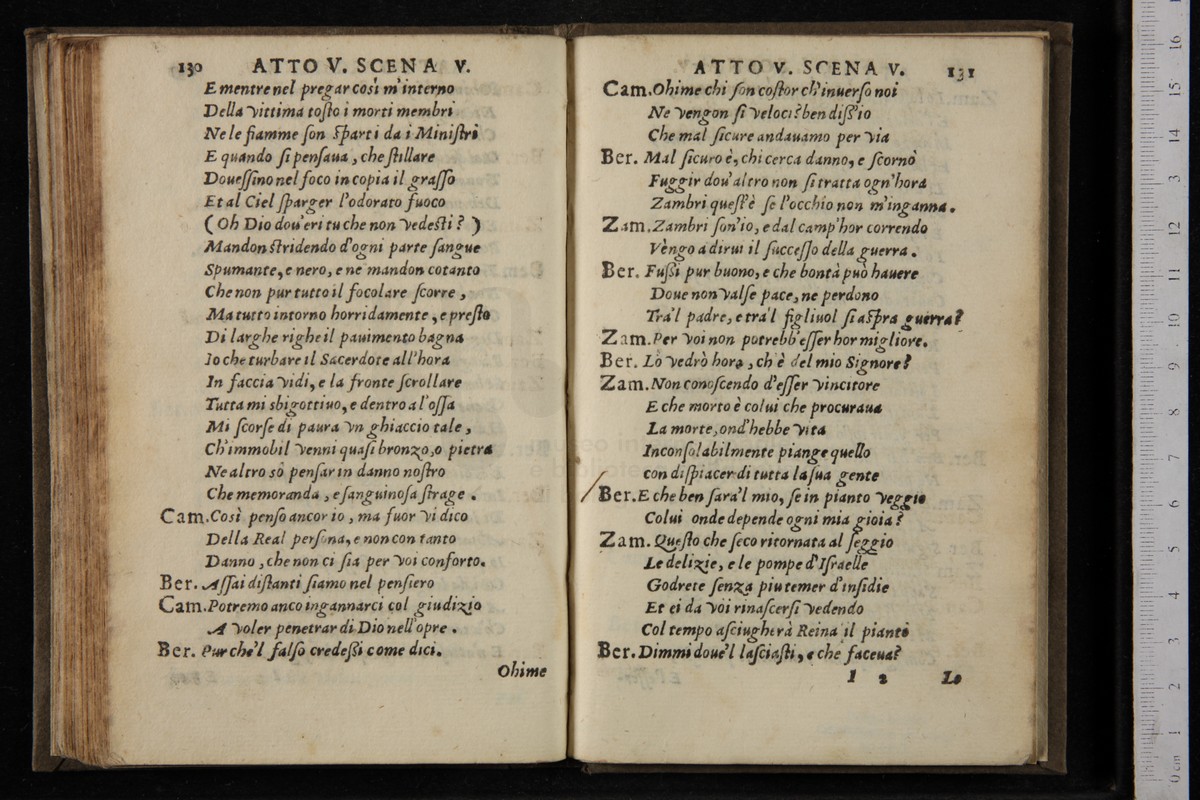 130 ATTO V. SCENA V.
E mentre nel pregar così m'interno
Della vittima tosto i morti membri
Ne le fiamme son sparti da i Ministri
E quando si pensaua, che stillare
Douessino nel foco in copia il grasso
Et al Ciel sparger l'odorato fuoco
(Oh Dio dou'eri tu che non vedesti?)
Mandon stridendo d'ogni parte sangue
Spumante, e nero, e ne mandon cotanto
Che non pur tutto il focolare scorre,
Ma tutto intorno horridamente, e presto
Di larghe righe il pauimento bagna
Io che turbare il Sacerdote all'hora
In faccia vidi, e la fronte scrollare
Tutta mi sbigottiuo, e dentro a l'ossa
Mi scorse di paura vn ghiaccio tale,
Ch'immobil venni quasi bronzo, o pietra
Ne altro sò pensar in danno nostro
Che memoranda, e sanguinosa strage.
Cam. Così penso ancor io, ma fuor vi dico
Della Real persona, e non con tanto
Danno, che non ci sia per voi conforto.
Ber. Assai distanti siamo nel pensiero
Cam. Potremo anco ingannarci col giudizio
A voler penetrar di Dio nell'opre.
Ber. Pur che'l falso credessi come dici.
Ohime
ATTO V. SCENA V. 131
Cam. Ohime chi son costor ch'inuerso noi
Ne vengon si veloci? ben diss'io
Che mal sicure andauamo per via
Ber. Mal sicuro è, chi cerca danno, e scorno
Fuggir dou'altro non si tratta ogn'hora
Zambri quest'è se l'occhio non m'inganna.
Zam. Zambri son'io, e dal camp'hor correndo
Vèngo a dirui il successo della guerra.
Ber. Fussi pur buono, e che bontà può hauere
Doue non valse pace, ne perdono
Tra'l padre, e tra'l figliuol si aspra guerra?
Zam. Per voi non potrebb'esser hor migliore.
Ber. Lo vedrò hora, ch'è del mio Signore?
Zam. Non conoscendo d'esser vincitore
E che morto è colui che procuraua
La morte, ond'hebbe vita
Inconsolabilmente piange quello
con dispiacer di tutta la sua gente
Ber. E che ben sara'l mio, se in pianto veggio
Colui onde depende ogni mia gioia?
Zam. Questo che seco ritornata al seggio
Le delizie, e le pompe d'Israelle
Godrete senza piu temer d'insidie
Et ei da voi rinascersi vedendo
Col tempo asciugherà Reina il pianto
Ber. Dimmi doue'l lasciasti, e che faceua?
I 2 Lo